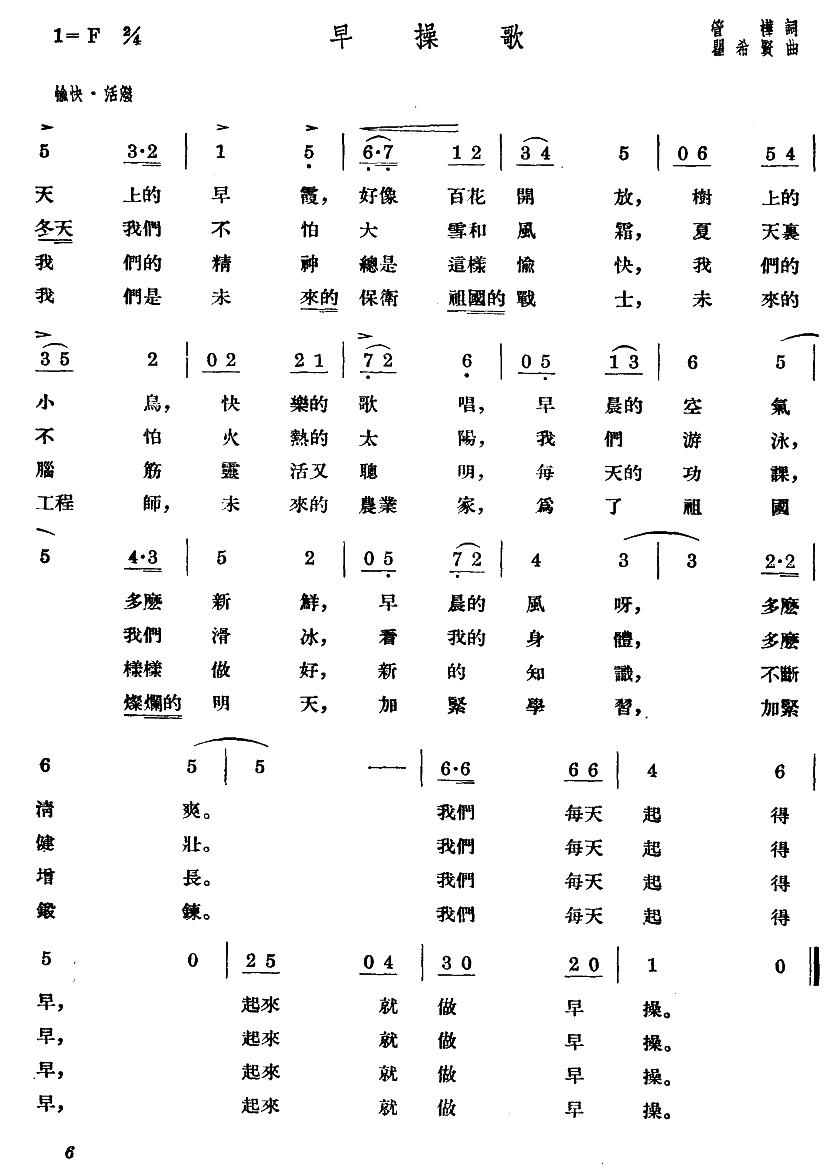 1=F 2/4 早操歌 管樺詞
瞿希賢曲
愉快·活潑
5 3·2 | 1 5 | 6·7 1 2 | 3 4 5 | 0 6 5 4 |
天 上的 早 霞, 好像 百花 開 放, 樹 上的
冬天 我們 不 怕 大 雪和 風 霜, 夏 天裏
我 們的 精 神 總是 這樣 愉 快, 我 們的
我 們是 未 來的 保衛 祖國的 戰 士, 未 來的
3 5 2 | 0 2 2 1 | 7 2 6 | 0 5 1 3 | 6 5 |
小 鳥, 快 樂的 歌 唱, 早 晨的 空 氣
不 怕 火 熱的 太 陽, 我 們 游 泳,
腦 筋 靈 活又 聰 明, 每 天的 功 課,
工程 師, 未 來的 農業 家, 爲 了 祖 國
5 4·3 | 5 2 | 0 5 7 2 | 4 3 | 3 2·2 |
多麽 新 鮮, 早 晨的 風 呀, 多麽
我們 滑 冰, 看 我的 身 體, 多麽
樣樣 做 好, 新 的 知 識, 不斷
燦爛的 明 天, 加 緊 學 習, 加緊
6 5 | 5 — | 6·6 6 6 | 4 6 |
清 爽。 我們 每天 起 得
健 壯。 我們 每天 起 得
增 長。 我們 每天 起 得
鍛 鍊。 我們 每天 起 得
5 0 | 2 5 0 4 | 3 0 2 0 | 1 0 ‖
早, 起來 就 做 早 操。
早, 起來 就 做 早 操。
早, 起來 就 做 早 操。
早, 起來 就 做 早 操。
6